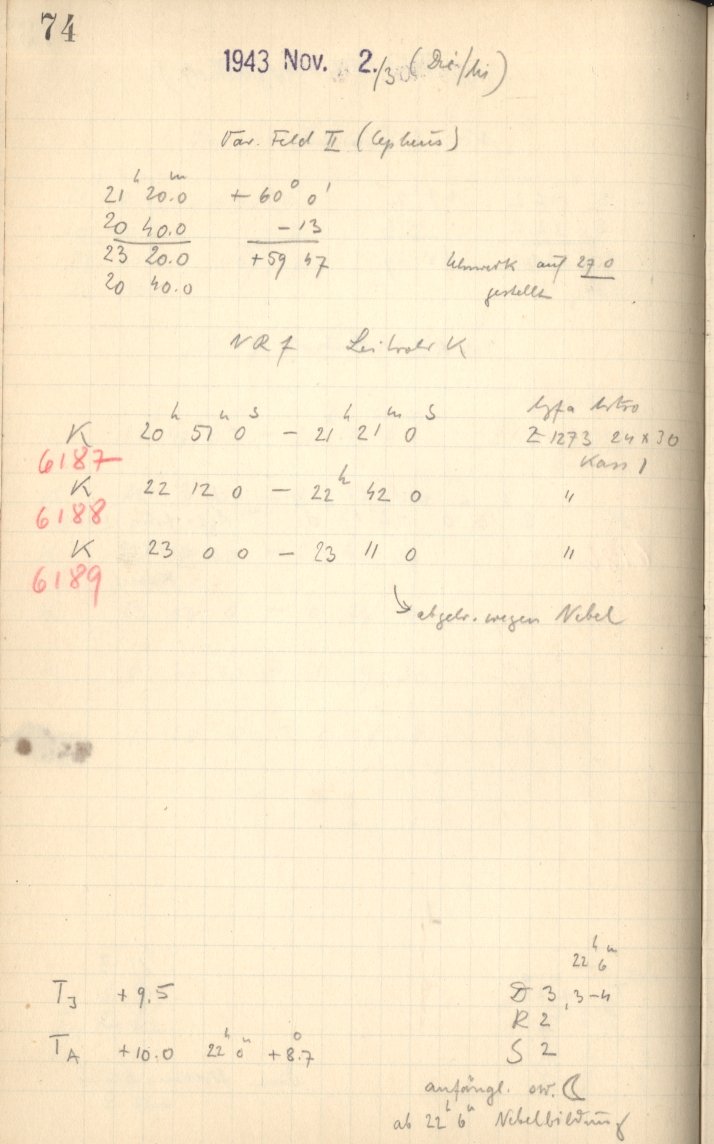 74
1943 Nov. 2./3
Var. Feld II (Cepheus)
21 h 20.0 m + 60° 0'
20 40.0 - 13
23 20.0 +59 47
20 40.0
Uhrwerk auf 27 0
gestellt
NR 7 Leitrohr K
K 20 h 51 m 0 s - 21 h 21 m 0 s Agfa Astro
6187 Z 1273 24 x 30
Kass 1
K 22 12 0 - 22 h 42 0 "
6188
K 23 0 0 - 23 11 0 "
6189
abgebr. wegen Nebel
22 h 6 m
T J + 9.5 D 3, 3-4
R 2
T A + 10.0 22 h 0 m + 8°.7 S 2
anfängl.
ab 22 h 6 m Nebelbildung